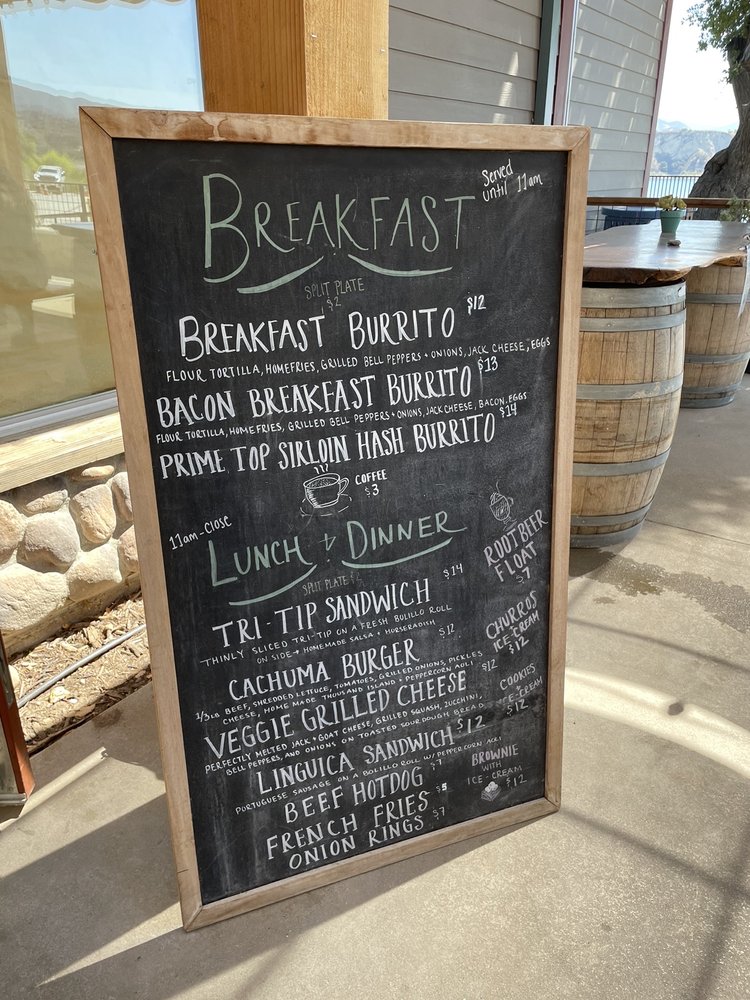 BREAKFAST
Served
until 11am
SPLIT PLATE
$2
BREAKFAST BURRITO $12
FLOUR TORTILLA, HOMEFRIES, GRILLED BELL PEPPERS + ONIONS, JACK CHEESE, EGGS
BACON BREAKFAST BURRITO $13
FLOUR TORTILLA, HOMEFRIES, GRILLED BELL PEPPERS + ONIONS, JACK CHEESE, BACON, EGGS
PRIME TOP SIRLOIN HASH BURRITO $14
COFFEE
$3
11am-CLOSE
LUNCH + DINNER
SPLIT PLATE
TRI-TIP SANDWICH $14
THINLY SLICED TRI-TIP ON A FRESH BOLILLO ROLL
ON SIDE + HOMEMADE SALSA + HORSERADISH
CACHUMA BURGER $12
1/3 LB BEEF, SHREDDED LETTUCE, TOMATOES, GRILLED ONIONS, PICKLES
CHEESE, HOME MADE THOUSAND ISLAND + PEPPERCORN AOLI
VEGGIE GRILLED CHEESE $12
PERFECTLY MELTED JACK + GOAT CHEESE, GRILLED SQUASH, ZUCCHINI,
BELL PEPPERS, AND ONIONS ON TOASTED SOURDOUGH BREAD
LINGUICA SANDWICH $12
PORTUGUESE SAUSAGE ON A BOLILLO ROLL W/ PEPPERCORN AOLI
BEEF HOTDOG $7
FRENCH FRIES $5
ONION RINGS $7
ROOTBEER
FLOAT
$7
CHURROS
ICE-CREAM
$12
COOKIES
ICE-CREAM
$12
BROWNIE
WITH
ICE-CREAM
$12